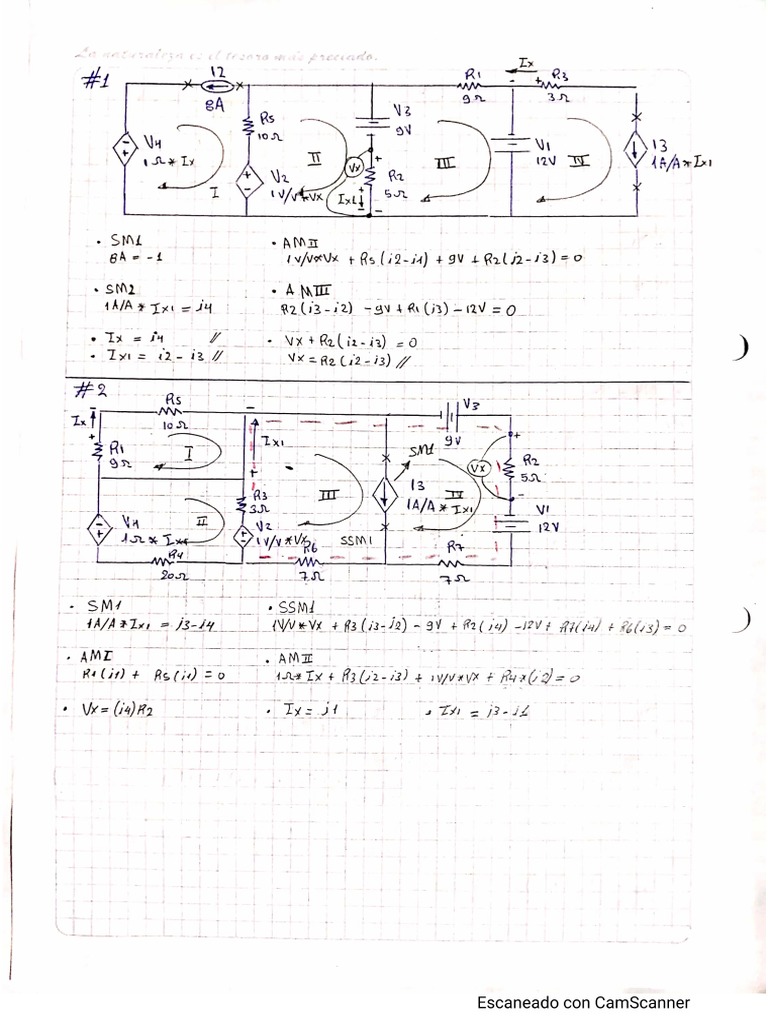 La naturaleza es el tesoro más preciado.
#1
I2
8A
Ix
R1
9Ω
R3
3Ω
R5
10Ω
V3
9V
V4
1Ω*Ix
I
II
V2
1V/V*Vx
Vx
R2
5Ω
Ix1
III
V1
12V
IV
I3
1A/A*Ix1
• SM1
8A = -1
• AMII
1V/V*Vx + R5(i2-i1) + 9V + R2(i2-i3) = 0
• SM2
1A/A * Ix1 = i4
• AMIII
R2(i3-i2) - 9V + R1(i3) - 12V = 0
• Ix = i4 //
• Ix1 = i2 - i3 //
• Vx + R2(i2-i3) = 0
Vx = R2(i2-i3) //
#2
R5
10Ω
Ix
R1
9Ω
I
Ix1
V3
9V
SM1
Vx
R2
5Ω
II
R3
3Ω
III
I3
1A/A * Ix1
IV
V1
12V
V4
1Ω * Ix
V2
1V/V*Vx
SSM1
R4
20Ω
R6
7Ω
R7
7Ω
• SM1
1A/A*Ix1 = i3-i4
• SSM1
1V/V*Vx + R3(i3-i2) - 9V + R2(i4) - 12V + R7(i4) + R6(i3) = 0
• AMI
R1(i1) + R5(i1) = 0
• AMII
1Ω*Ix + R3(i2-i3) + 1V/V*Vx + R4*(i2) = 0
• Vx = (i4)R2
• Ix = i1
• Ix1 = i3-i1
Escaneado con CamScanner